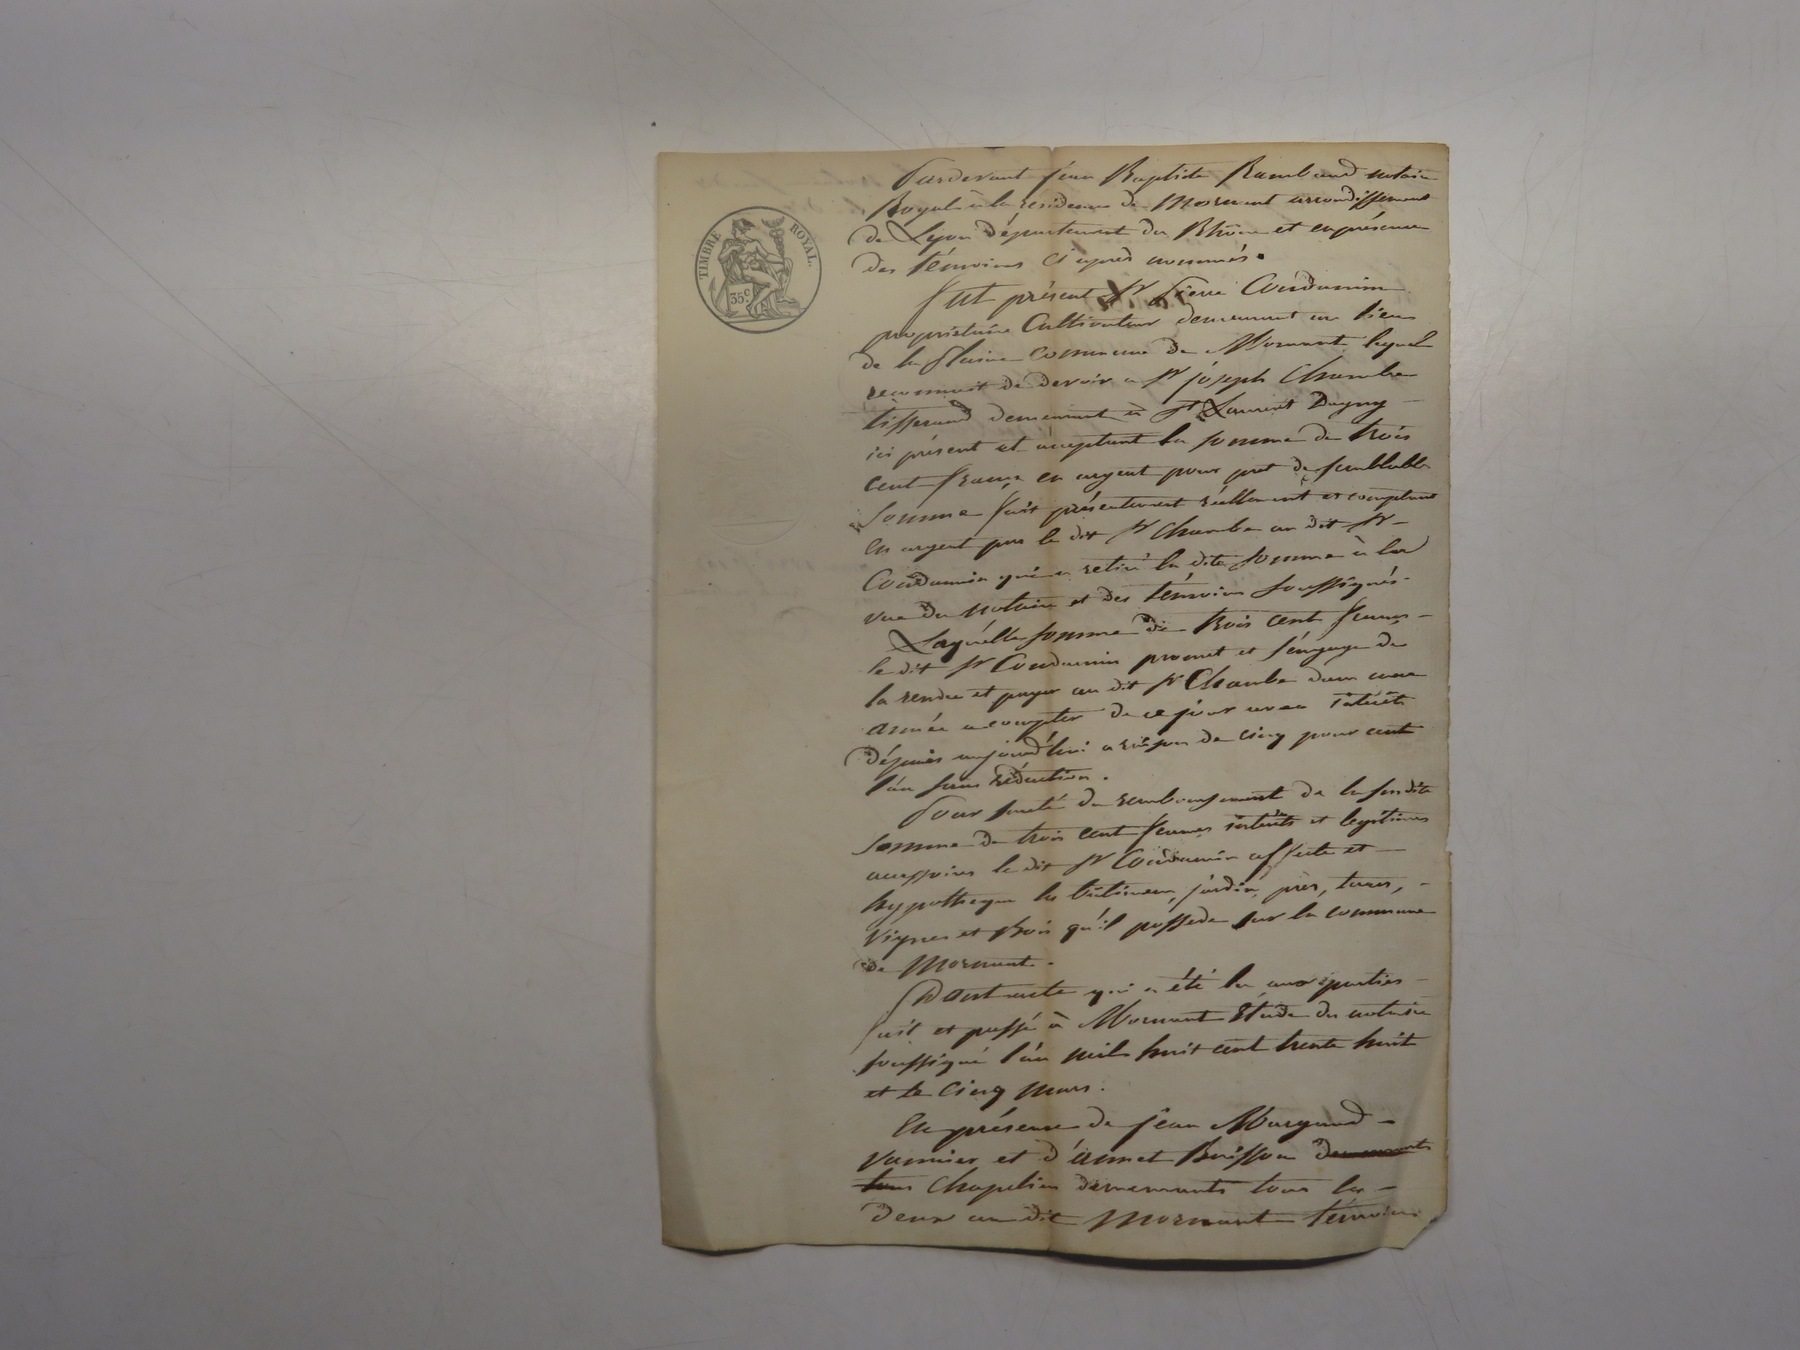 TIMBRE ROYAL.
35 c.
Pardevant jean Baptiste Rambaud notaire
Royal à la residence de Mornant arrondissement
de Lyon département du Rhône et en présence
des témoins ci après nommés.
fut présent Sr Pierre Condamin
propriétaire Cultivateur demeurant au lieu
de la plaine commune de Mornant lequel
reconnait de devoir a Sr joseph Chambe
tisserand demeurant à St Laurent Dagny
ici présent et acceptant la somme de trois
cent francs en argent pour pret de semblable
somme fait présentement réellement et comptant
en argent par le dit Sr Chambe au dit Sr
Condamin qui a retiré la dite somme à la
vue du notaire et des témoins soussignés.
Laquelle somme de trois cent francs
le dit Sr Condamin promet et s'engage de
la rendre et payer au dit Sr Chambe dans une
année a compter de ce jour avec intérêts
dépuis aujourd'hui a raison de cinq pour cent
l'an sans réduction.
Pour sureté du remboursement de la susdite
somme de trois cent francs intérêts et legitimes
accessoires le dit Sr Condamin affecte et
hypotheque les bâtimens, jardin, près, terres,
vignes et bois qu'il possede sur la commune
de Mornant.
Dont acte qui a été lu aux parties
fait et passé à Mornant Etude du notaire
soussigné l'an mil huit cent trente huit
et le cinq mars.
En présence de jean
vannier et d'annet Buisson demeurants
tous Chapelier demeurants tous les
deux au dit Mornant témoins